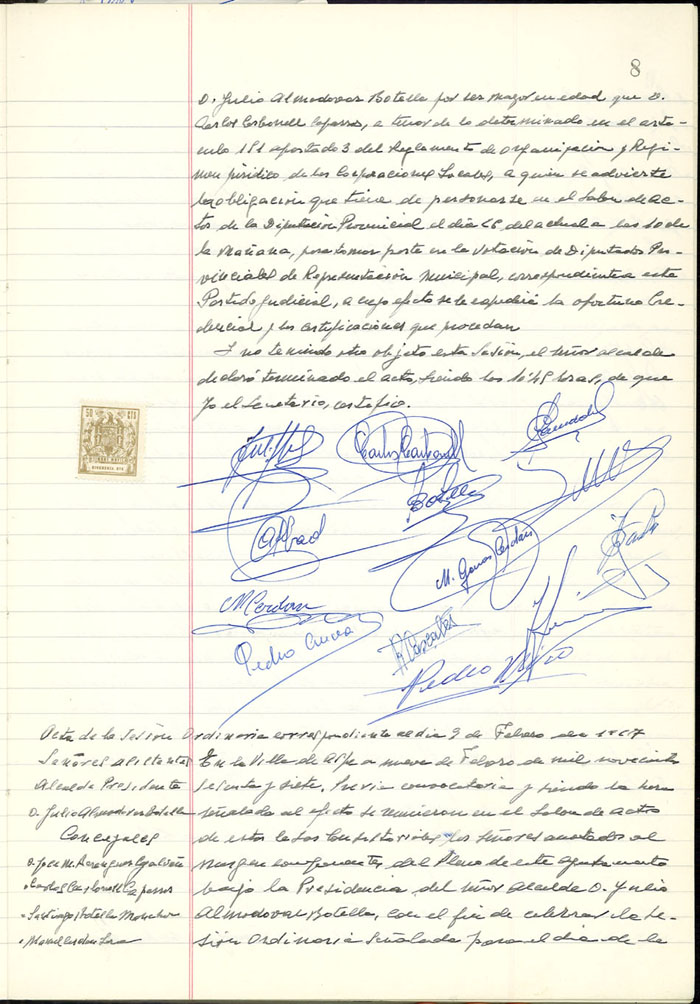 8
D. Julio Almodovar Botella por ser mayor en edad que D.
Carlos Carbonell Caparros, a tenor de lo determinado en el artí-
culo 181 apartado 3 del Reglamento de Organización y Régi-
men jurídico de las Corporaciones Locales, a quien se advierte
la obligación que tiene de personarse en el Salon de Ac-
tos de la Diputación Provincial el día del actual a las 10 de
la mañana, para tomar parte en la votación de Diputados Pro-
vinciales de Representación Municipal, correspondiente a este
Partido Judicial, a cuyo efecto se le expedirá la oportuna Cre-
dencial y las certificaciones que procedan
Y no teniendo otro objeto esta Sesión, el Señor alcalde
declaró terminado el acto, siendo las horas, de que
yo el Secretario, certifico.
50 CTS
Carlos Carbonell
Botella
Abad
M. Cerdan
Pedro
Pedro
Acta de la Sesión Ordinaria correspondiente al día 9 de Febrero de 1967
Señores asistentes
Alcalde Presidente
D. Julio Almodovar Botella
Concejales
D. Jose M. Berenguer
Carlos Carbonell Caparros
Santiago Botella
Manuel Cerdan
En la Villa de Aspe a nueve de Febrero de mil novecientos
sesenta y siete, Previa convocatoria y siendo la hora
señalada al efecto se reunieron en el Salon de actos
de estas Casas Consistoriales los Señores anotados al
margen componentes del Pleno de este Ayuntamiento
bajo la Presidencia del Señor Alcalde D. Julio
Almodovar Botella, con el fin de celebrar la Se-
sión Ordinaria señalada para el día de la